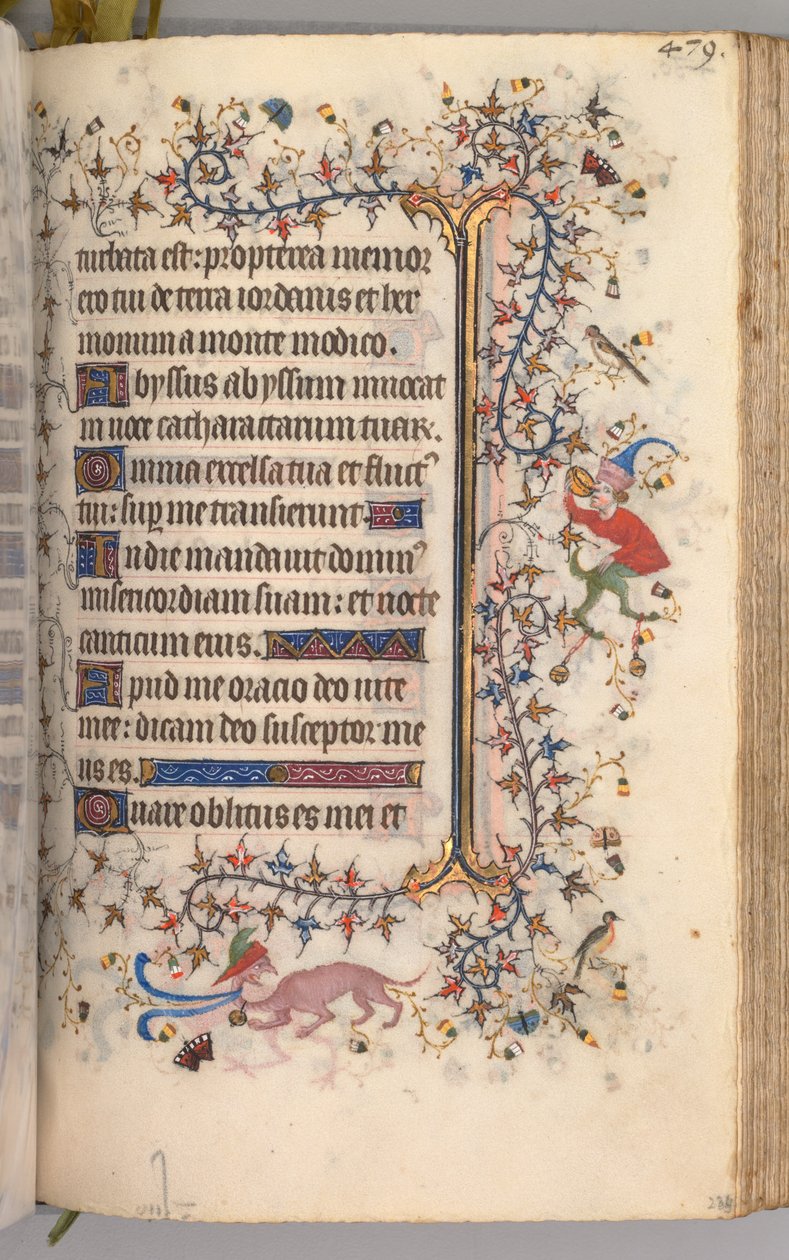 479.
turbata est: propterea memor
ero tui de terra iordanis et her
monium a monte modico.
Abyssus abyssum inuocat
in uoce catharactarum tuar.
Omnia excelsa tua et fluctꝰ
tui: suꝑ me transierunt.
In die mandauit dominꝰ
misericordiam suam: et nocte
canticum eius.
Apud me oracio deo uite
mee: dicam deo susceptor me
us es.
Quare oblitus es mei et